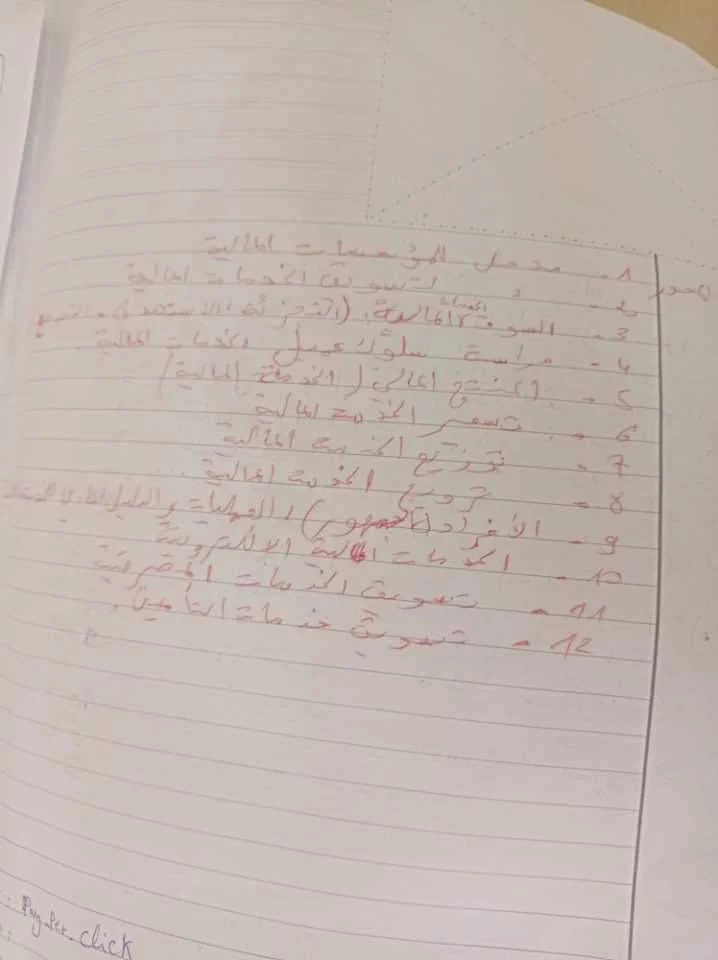 المحور 1- مدخل للمؤسسات المالية
2- " لتسويق الخدمات المالية
3- السوق الخدمات المالية، (التجزئة، الاستهداف،
4- دراسة سلوك عميل الخدمات المالية
5- المنتج المالي (الخدمة المالية)
6- تسعير الخدمة المالية
7- توزيع الخدمة المالية
8- ترويج الخدمة المالية.
9- الأفراد (الجمهور)، العمليات والدليل المادي
10- الخدمات المالية الالكترونية
11- تسويق الخدمات المصرفية
12- تسويق خدمات التأمين.
Pay-Per click